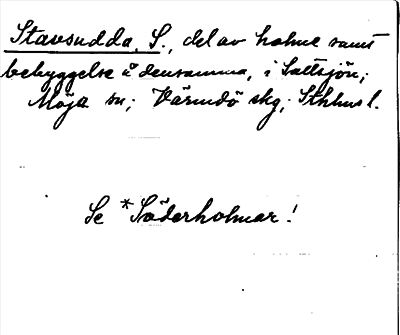 Stavsudda, S., del av holme samt
bebyggelse å densamma, i Saltsjön;
Möja sn; Värmdö skg; Sthlms l.
Se *Söderholmar!